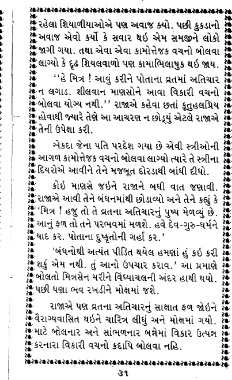 રહેલા શિયાળીયાઓએ પણ અવાજ કર્યો. પછી કુકડાનો
અવાજ એવો કર્યો કે સવાર થઇ એમ સમજીને લોકો
જાગી ગયા. તથા એવા એવા કામોત્તેજક વચનો બોલવા
લાગ્યો કે દૃઢ શિયલવાળો પણ કામાભિલાષુક થઇ જાય.
"હે મિત્ર ! આવું કરીને પોતાના વ્રતમાં અતિચાર
ન લગાડ. શીલવાન માણસોને આવા વિકારી વચનો
બોલવા યોગ્ય નથી." રાજાએ કહેવા છતાં કુતુહલપ્રિય
હોવાથી જ્યારે તેણે આ આચરણ ન છોડ્યું એટલે રાજાએ
તેની ઉપેક્ષા કરી.
એકદા જેના પતિ પરદેશ ગયા છે એવી સ્ત્રીઓની
આગળ કામોત્તેજક વચનો બોલવા લાગ્યો ત્યારે તે સ્ત્રીના
દિયરોએ આવીને તેને મજબૂત દોરડાથી બાંધી દીધો.
કોઇ માણસે જઇને રાજાને બધી વાત જણાવી.
રાજાએ આવી તેને બંધનમાંથી છોડાવ્યો અને તેને કહ્યું કે
'મિત્ર ! હજુ તો તે વ્રતના અતિચારનું પુષ્પ મેળવ્યું છે.
આનું ફળ તો તને પરભવમાં મળશે. હવે દેવ-ગુરુ-ધર્મને
યાદ કર. પોતાના દુષ્કૃતોની ગર્હા કર.'
'બંધનોથી અત્યંત પીડિત થયેલ હમણાં હું કઇ કરી
શકું એમ નથી. તું આનો ઉપચાર કરાવ.' આ પ્રમાણે
બોલતો મિત્રસેન મરીને વિંધ્યાચલની અંદર હાથી થયો.
પછી ઘણા ભવ રખડીને મોક્ષમાં જશે.
રાજાએ પણ વ્રતના અતિચારનું સાક્ષાત ફળ જોઇને
વૈરાગ્યવાસિત થઇને ચારિત્ર લીધું અને મોક્ષમાં ગયો.
માટે બોલનાર અને સાંભળનાર બન્નેમાં વિકાર ઉત્પન્ન
કરનારા વિકારી વચનો કદાપિ બોલવા નહિ.
૩૧